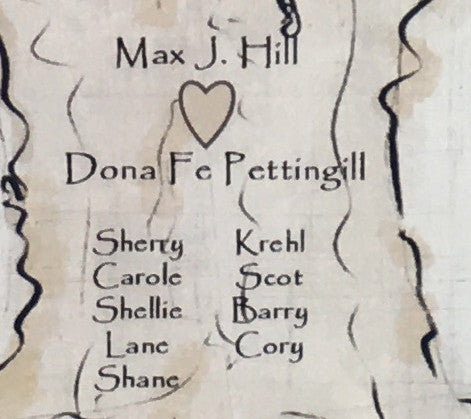 Max J. Hill
Dona Fe Pettingill
Sherry Krehl
Carole Scot
Shellie Barry
Lane Cory
Shane